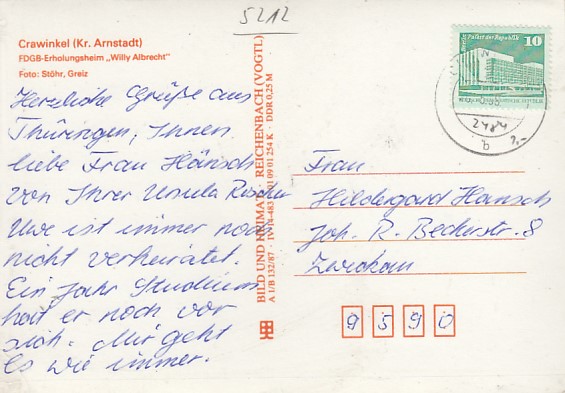 5212
Crawinkel (Kr. Arnstadt)
FDGB-Erholungsheim „Willy Albrecht"
Foto: Stöhr, Greiz
Herzliche Grüße aus
Thüringen, Ihnen
liebe Frau Hänsch
von Ihrer Ursula
Uwe ist immer noch
nicht verheiratet.
Ein Jahr Studium
hat er noch vor
sich. Mir geht
es wie immer.
BILD UND HEIMAT REICHENBACH (VOGTL)
A 1/B 132/87 · IV-14-483 01 09 01 254 K · DDR 0,25 M
Palast der Republik
10
2484
b
Frau
Hildegard Hänsch
Joh. R. Becherstr. 8
Zwickau
9590